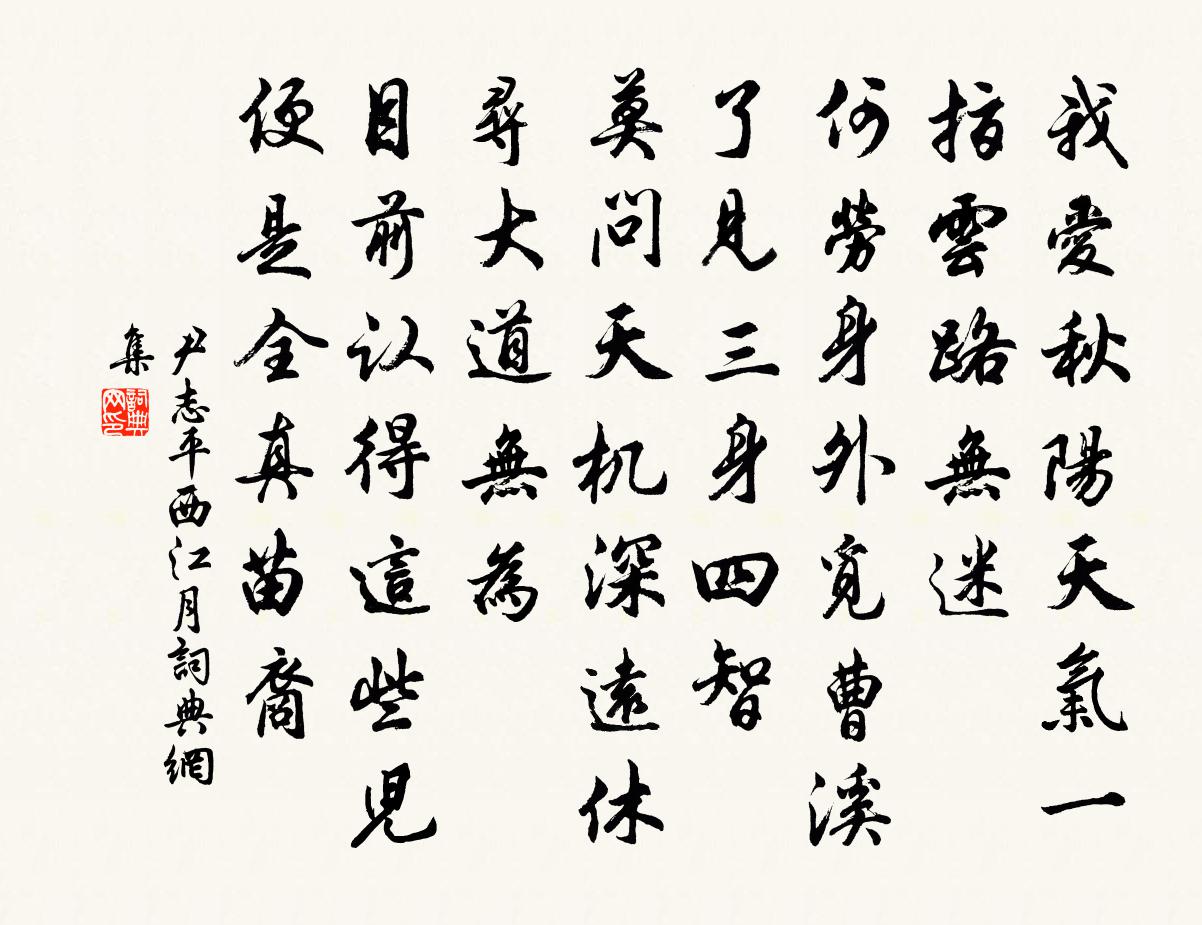 我愛秋陽天氣一
指雲路無迷
何勞身外覓曹溪
了見三身四智
莫問天机深遠休
尋大道無為
目前认得這些児
便是全真苗裔
尹志平西江月詞典網
集
詞典网印